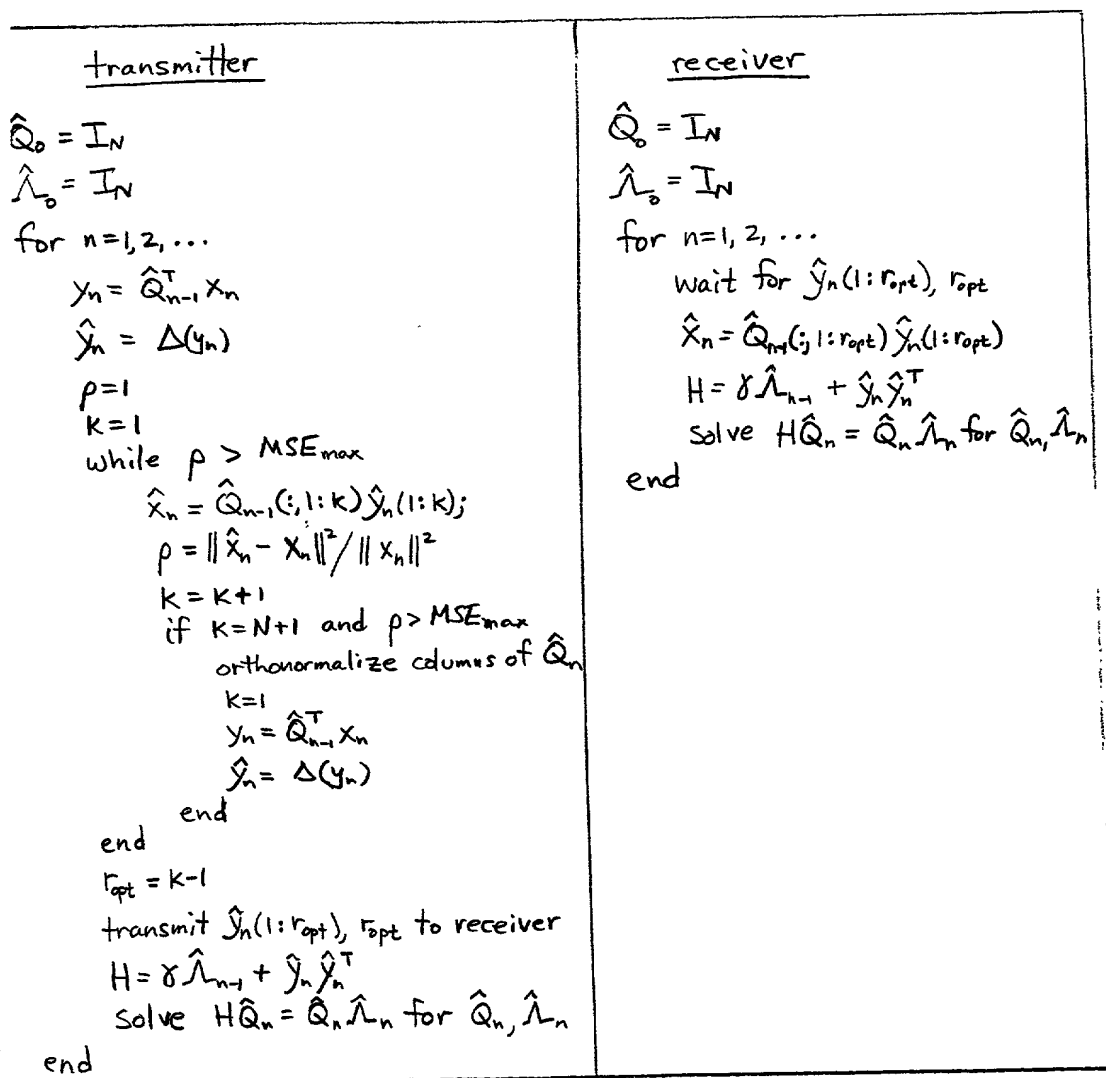 transmitter
Q̂₀ = I_N
Λ̂₀ = I_N
for n=1,2,...
yₙ = Q̂ᵀₙ₋₁ xₙ
ŷₙ = Δ(yₙ)
ρ=1
k=1
while ρ > MSE_max
x̂ₙ = Q̂ₙ₋₁(:,1:k) ŷₙ(1:k);
ρ = ‖x̂ₙ - xₙ‖² / ‖xₙ‖²
k = k+1
if k=N+1 and ρ > MSE_max
orthonormalize columns of Q̂ₙ
k=1
yₙ = Q̂ᵀₙ₋₁ xₙ
ŷₙ = Δ(yₙ)
end
end
r_opt = k-1
transmit ŷₙ(1:r_opt), r_opt to receiver
H = γΛ̂ₙ₋₁ + ŷₙŷₙᵀ
solve HQ̂ₙ = Q̂ₙΛ̂ₙ for Q̂ₙ, Λ̂ₙ
end
receiver
Q̂₀ = I_N
Λ̂₀ = I_N
for n=1,2,...
wait for ŷₙ(1:r_opt), r_opt
x̂ₙ = Q̂ₙ₋₁(:,1:r_opt) ŷₙ(1:r_opt)
H = γΛ̂ₙ₋₁ + ŷₙŷₙᵀ
solve HQ̂ₙ = Q̂ₙΛ̂ₙ for Q̂ₙ, Λ̂ₙ
end